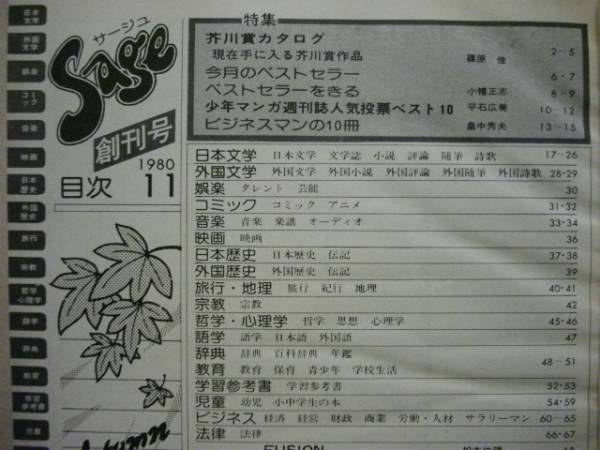 日本
文学
外国
文学
娯楽
コミ
ック
音楽
映画
日本
歴史
外国
歴史
旅行
宗教
哲学
心理学
語学
辞典
教育
学習
参考書
児童
サージュ
Sage
創刊号
1980
目次 11
特集
芥川賞カタログ
現在手に入る芥川賞作品 篠原 佳 2~5
今月のベストセラー 6・7
ベストセラーをきる 小幡正志 8・9
少年マンガ週刊誌人気投票ベスト10 平石広美 10~12
ビジネスマンの10冊 畠中秀夫 13~15
日本文学 日本文学 文学誌 小説 評論 随筆 詩歌 17~26
外国文学 外国文学 外国小説 外国評論 外国随筆 外国詩歌 28・29
娯楽 タレント 芸能 30
コミック コミック アニメ 31・32
音楽 音楽 楽譜 オーディオ 33・34
映画 映画 36
日本歴史 日本歴史 伝記 37・38
外国歴史 外国歴史 伝記 39
旅行・地理 旅行 紀行 地理 40・41
宗教 宗教 42
哲学・心理学 哲学 思想 心理学 45・46
語学 語学 日本語 外国語 47
辞典 辞典 百科辞典 年鑑
教育 教育 保育 青少年 学校生活 48~51
学習参考書 学習参考書 52・53
児童 幼児 小中学生の本 54~59
ビジネス 経済 経営 財政 商業 労働・人材 サラリーマン 60~65
法律 法律 66・67
FUSION